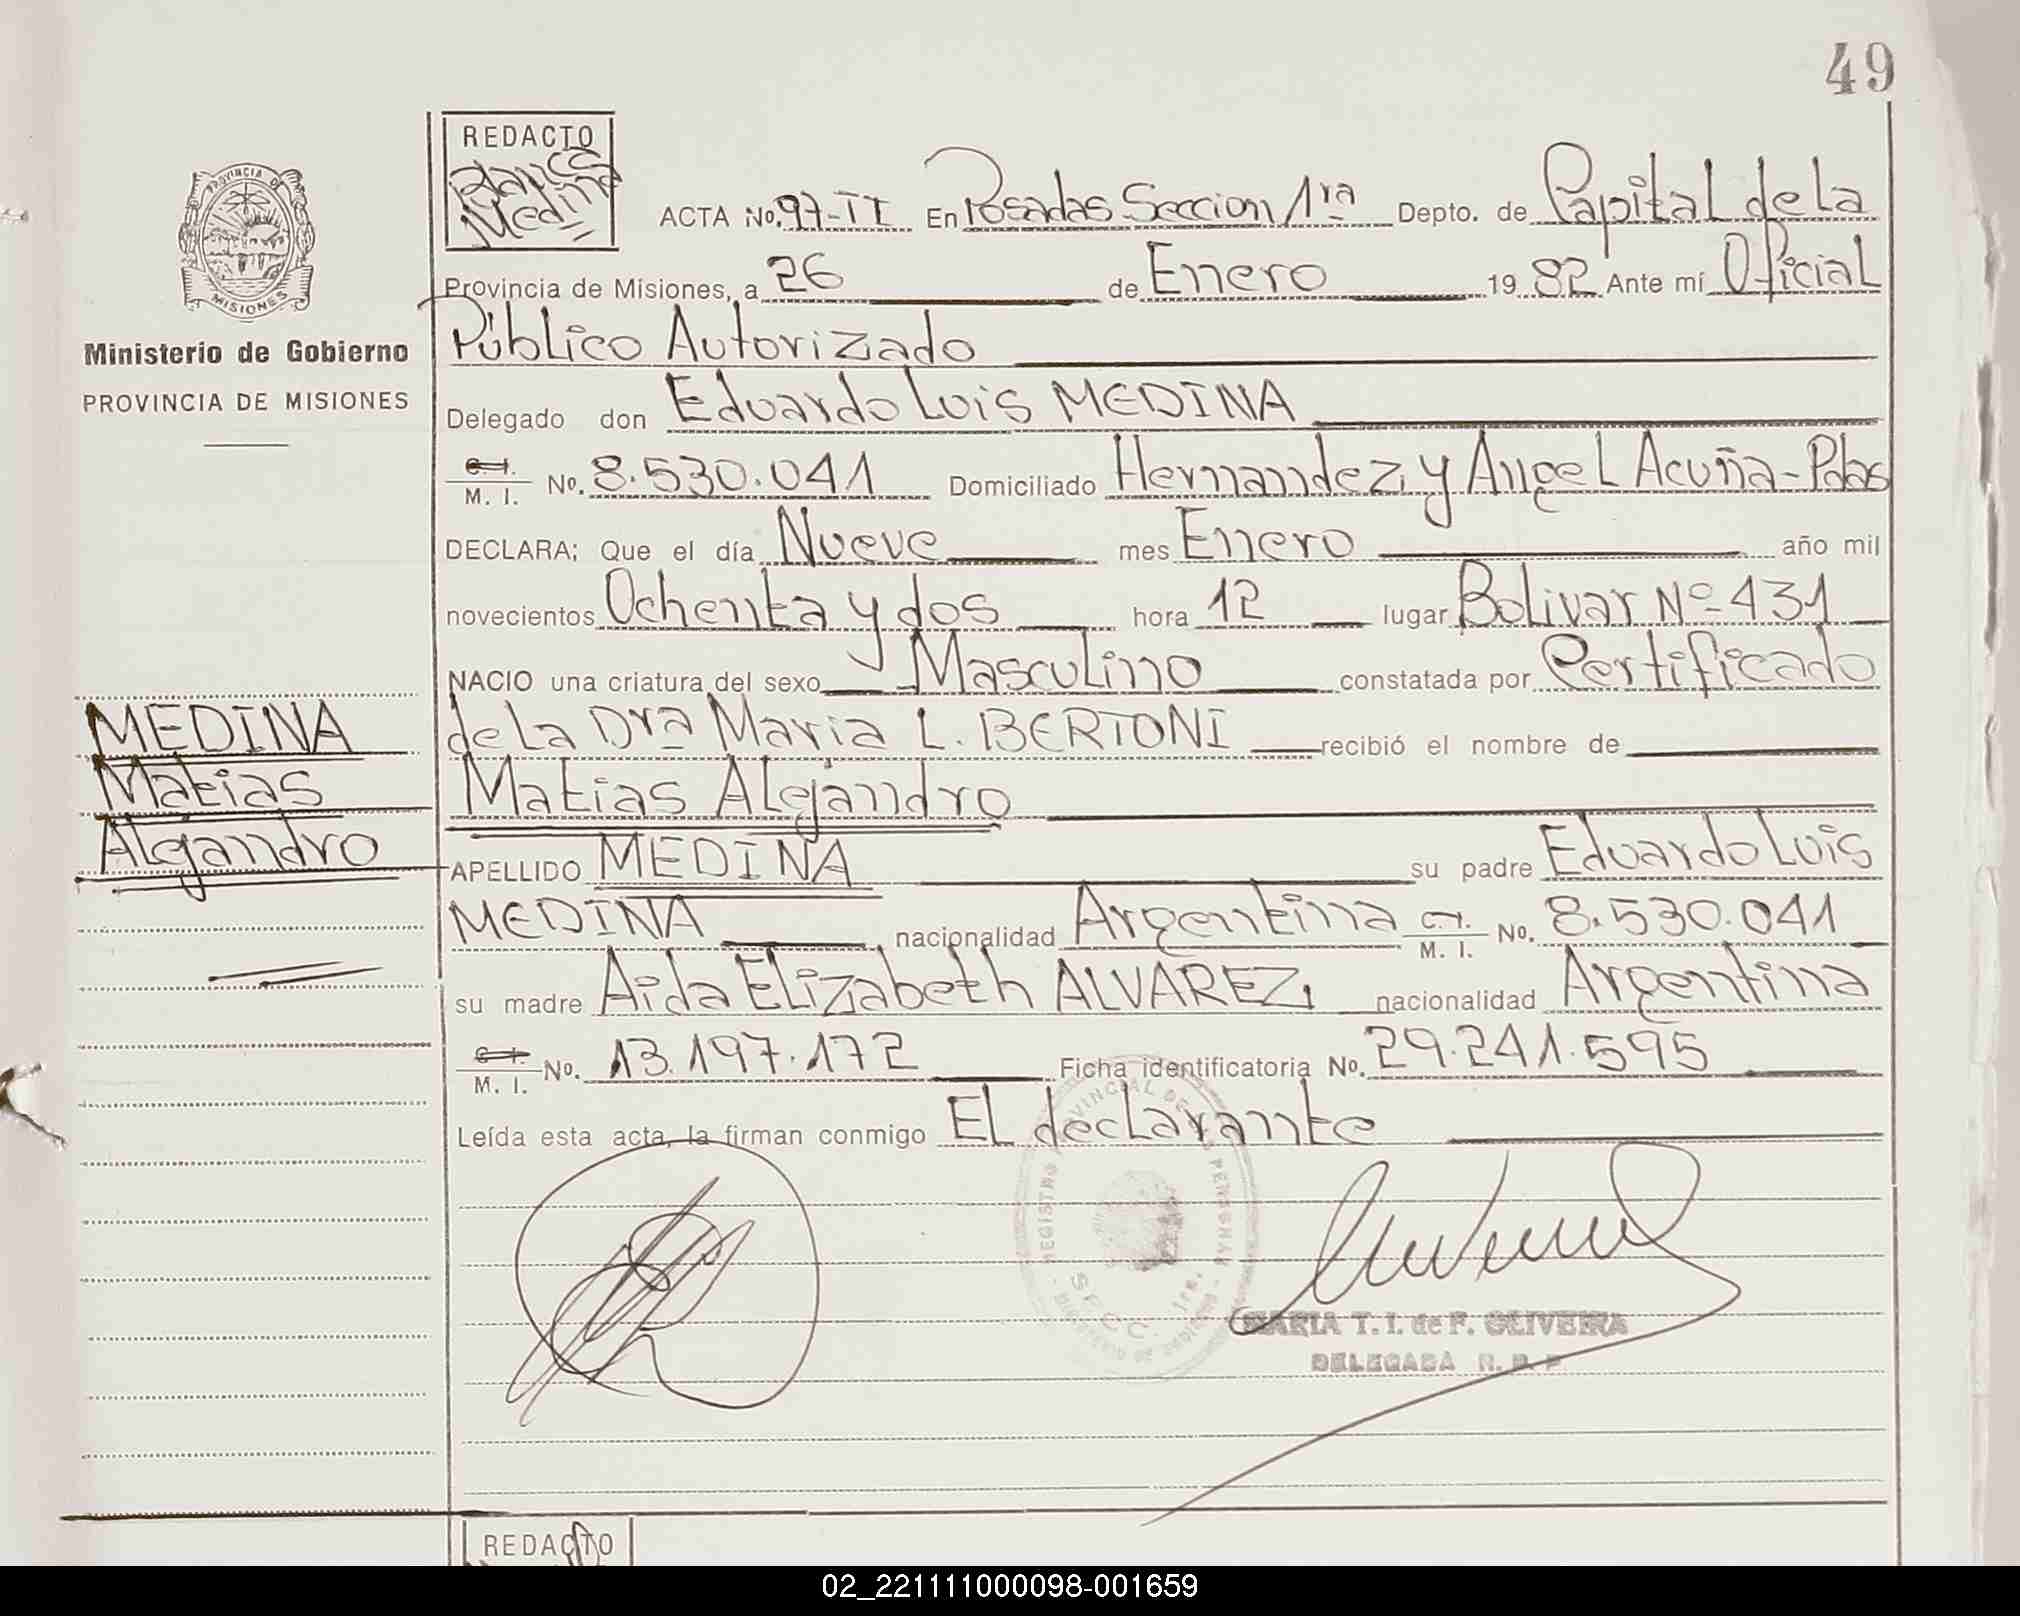 49
REDACTO
Blanca
Medina
PROVINCIA DE
MISIONES
Ministerio de Gobierno
PROVINCIA DE MISIONES
ACTA No. 97-II En Posadas Seccion 1ra Depto. de Capital de La
Provincia de Misiones, a 26 de Enero 1982 Ante mí Oficial
Público Autorizado
Delegado don Eduardo Luis MEDINA
C. I. / M. I. No. 8.530.041 Domiciliado Hernandez y Angel Acuña-Pdas
DECLARA; Que el día Nueve mes Enero año mil
novecientos Ochenta y dos hora 12 lugar Bolivar Nº 431
NACIO una criatura del sexo Masculino constatada por Certificado
de La Dra Maria L. BERTONI recibió el nombre de
Matias Alejandro
APELLIDO MEDINA su padre Eduardo Luis
MEDINA nacionalidad Argentina C. I. / M. I. No. 8.530.041
su madre Aida Elizabeth ALVAREZ nacionalidad Argentina
C. I. / M. I. No. 13.197.172 Ficha identificatoria No. 29.241.595
Leída esta acta, la firman conmigo EL declarante
MEDINA
Matias
Alejandro
REGISTRO PROVINCIAL DE LAS PERSONAS
MARIA T. I. de F. OLIVEIRA
DELEGADA R. P. P.
REDACTO
02_221111000098-001659